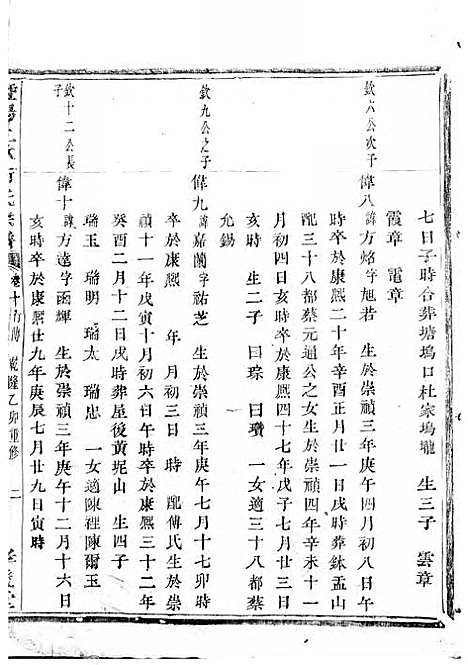 七日子時合葬塘塢口杜家塢壠 生三子 雲章
霞章 電章
欽六公次子
偉八諱方烙字旭若 生於崇禎三年庚午四月初八日午
時卒於康熙二十年辛酉正月廿一日戌時葬鉢盂山
配三十八都蔡元通公之女生於崇禎四年辛未十一
月初四日亥時卒於康熙四十七年戊子七月廿三日
亥時 生二子 曰琮 曰瓚 一女適三十八都蔡
允錫
欽九公之子
偉九諱嘉蘭字祐芝 生於崇禎三年庚午七月十七卯時
卒於康熙 年 月初三日 時 配傅氏生於崇
禎十一年戊寅十月初六日午時卒於康熙三十二年
癸酉二月十二日戌時葬屋後黃坭山 生四子
瑞玉 瑞明 瑞太 瑞忠 一女適陳裡陳爾玉
欽十二公長子
偉十諱方遠字函輝 生於崇禎三年庚午十二月十六日
亥時卒於康熙廿九年庚辰七月廿九日寅時
卷十 行傳 乾隆乙卯重修 二